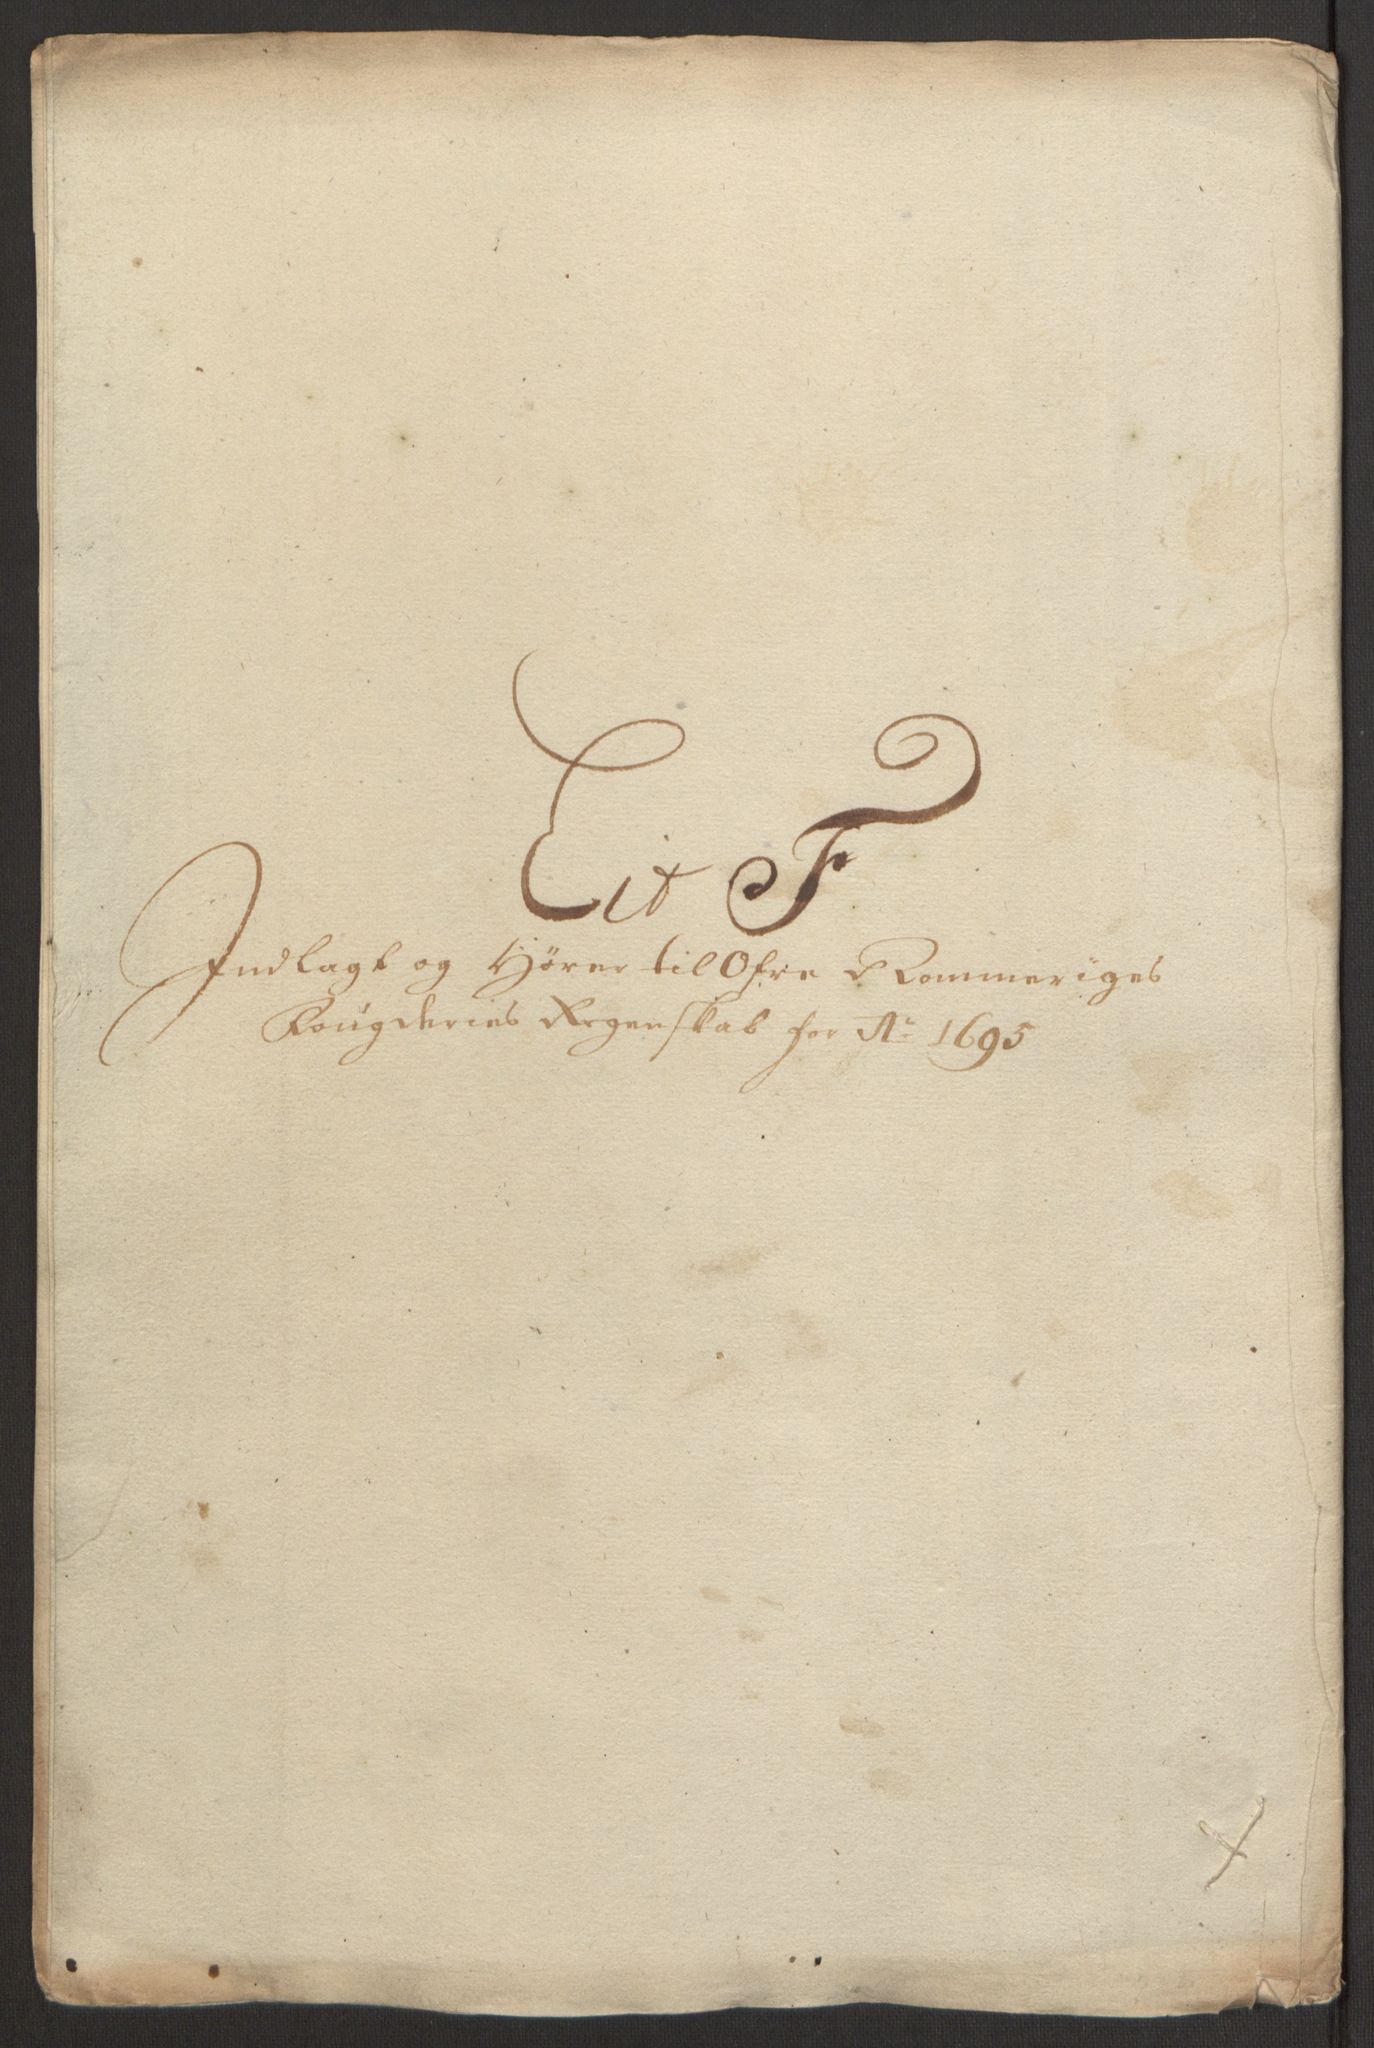 Lit F
Indlagt og Hører til Ofre Rommeriges
Fougderies Regenskab for Ao 1695